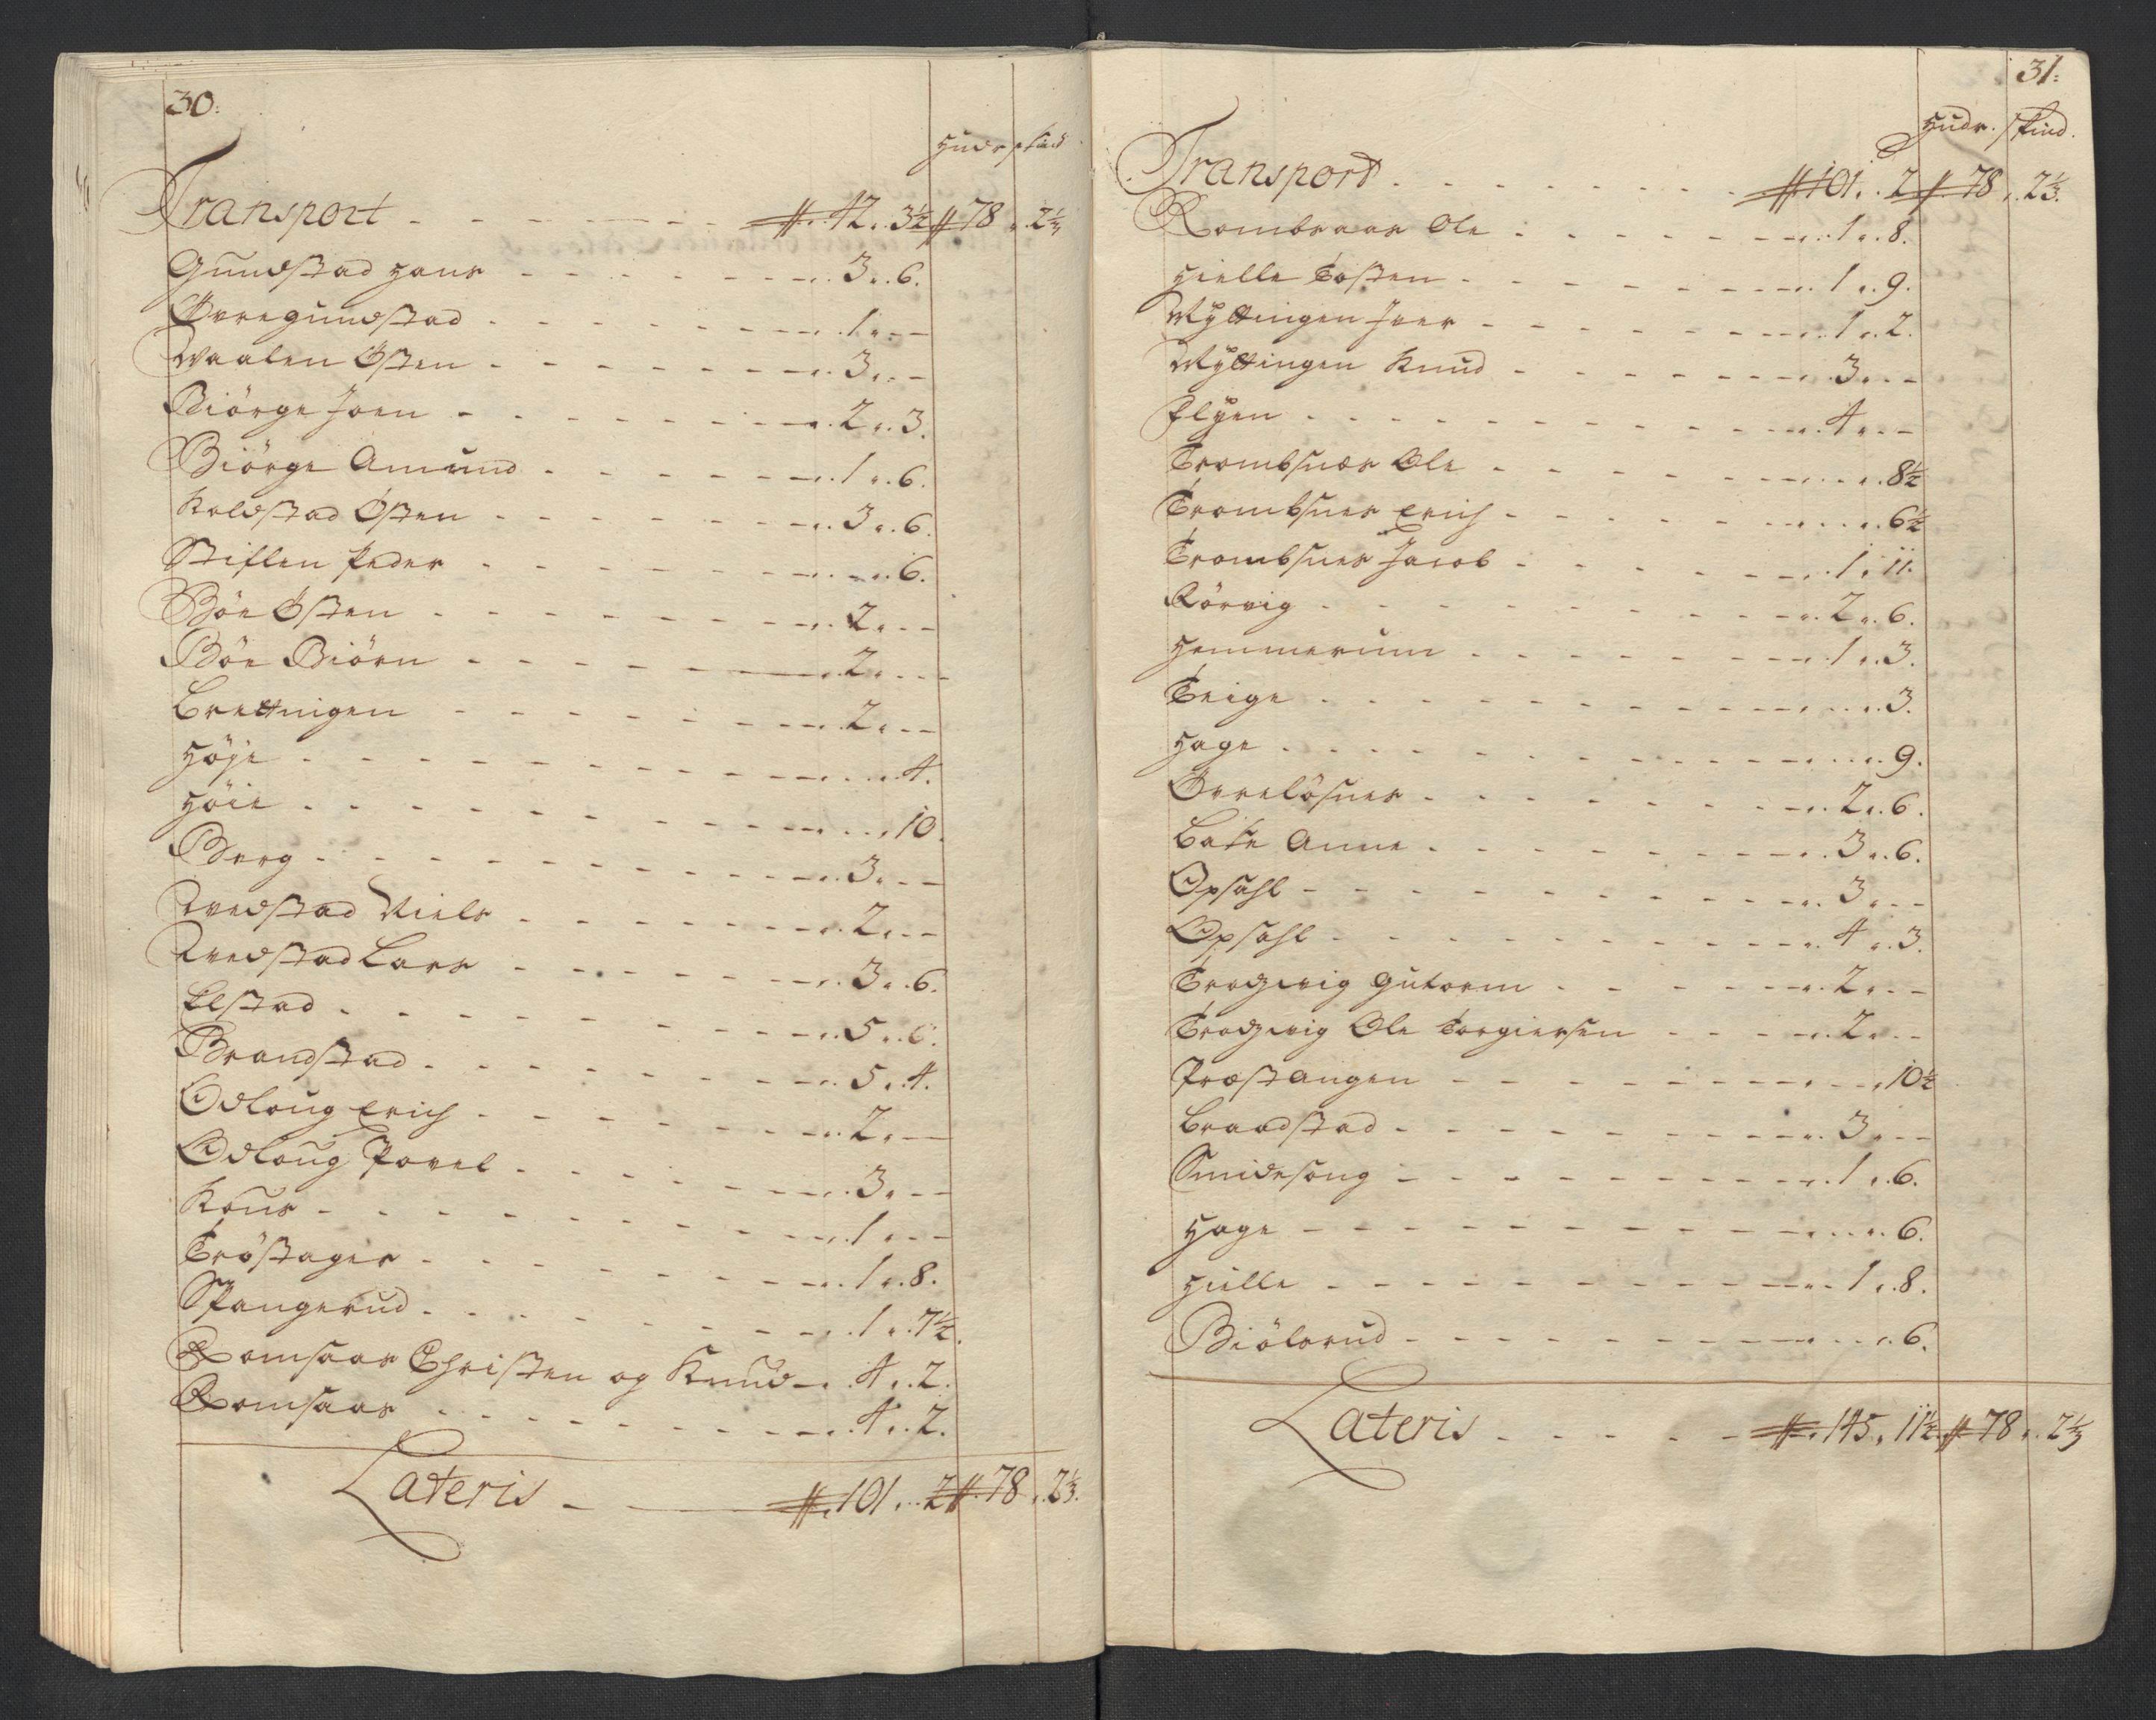 30:
Hudr skind
Transport - - - - - - # 42 . 3½ # 78 . 2⅓
Gundstad Hans - - - - - - 3 . 6.
Øvregundstad - - - - - - 1 . -
Waalen Østen - - - - - - 3 . -
Biörge Joen - - - - - - 2 . 3.
Biörge Amund - - - - - - 1 . 6.
Koldstad Østen - - - - - - 3 . 6.
Stiflen Peder - - - - - - 6.
Böe Østen - - - - - - 2 . -
Böe Biörn - - - - - - 2 . -
Brettingen - - - - - - 2 . -
Höye - - - - - - 4.
Höie - - - - - - 10.
Berg - - - - - - 3 . -
Tvedstad Niels - - - - - - 2 . -
Tvedstad Lars - - - - - - 3 . 6.
Elstad - - - - - - 5 . 6.
Brandstad - - - - - - 5 . 4.
Odloug Erich - - - - - - 2 . -
Odloug Povel - - - - - - 3 . -
Krus - - - - - - 1 . -
Tröstager - - - - - - 1 . 8.
Spangerud - - - - - - 1 . 7½.
Romsaas Christen og Knud - . 4 . 2.
Romsaas - - - - - - 4 . 2.
Lateris - # . 101 . 2 # . 78 . 2⅓.
31:
Hudr. skind.
Transport - - - - - - # 101 . 2 # 78 . 2⅓.
Rombsaas Ole - - - - - - 1 . 8.
Hielle Tosten - - - - - - 1 . 9.
Myttingen Iver - - - - - - 1 . 2.
Myttingen Knud - - - - - - 3 . -
Elyen - - - - - - 4 . -
Trombsnes Ole - - - - - - 8½
Trombsnes Erich - - - - - - 6½
Trombsnes Jacob - - - - - - 1 . 11.
Rörvig - - - - - - 2 . 6.
Hemmerum - - - - - - 1 . 3.
Teige - - - - - - 3.
Hage - - - - - - 9.
Övrelösnes - - - - - - 2 . 6.
Anne - - - - - - 3 . 6.
Opsahl - - - - - - 3 . -
Opsahl - - - - - - 4 . 3.
Trodzvig Gutorm - - - - - - 2 . -
Trodzvig Ole Torgiersen - - - - 2 . -
Præstangen - - - - - - 10½
Braadstad - - - - - - 3 . -
Smidesong - - - - - - 1 . 6.
Hage - - - - - - 6.
Hielle - - - - - - 1 . 8.
Biölorud - - - - - - 6.
Lateris - - - - - # . 145 . 11½ # 78 . 2⅓